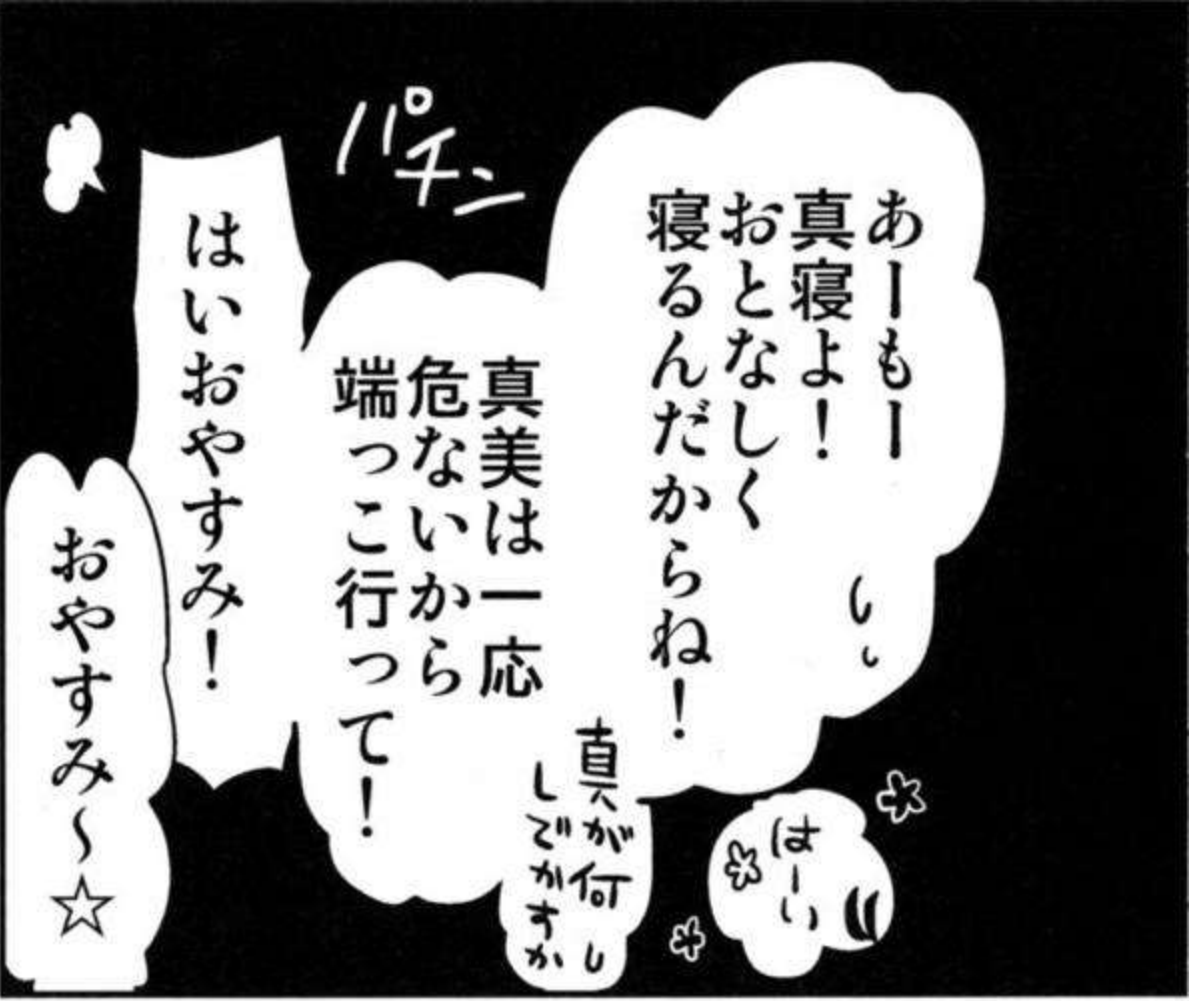 あーもー
真寝よ！
おとなしく
寝るんだからね！
はーい
真美は一応
危ないから
端っこ行って！
真が何し
しでかすか
パチン
はいおやすみ！
おやすみ〜☆